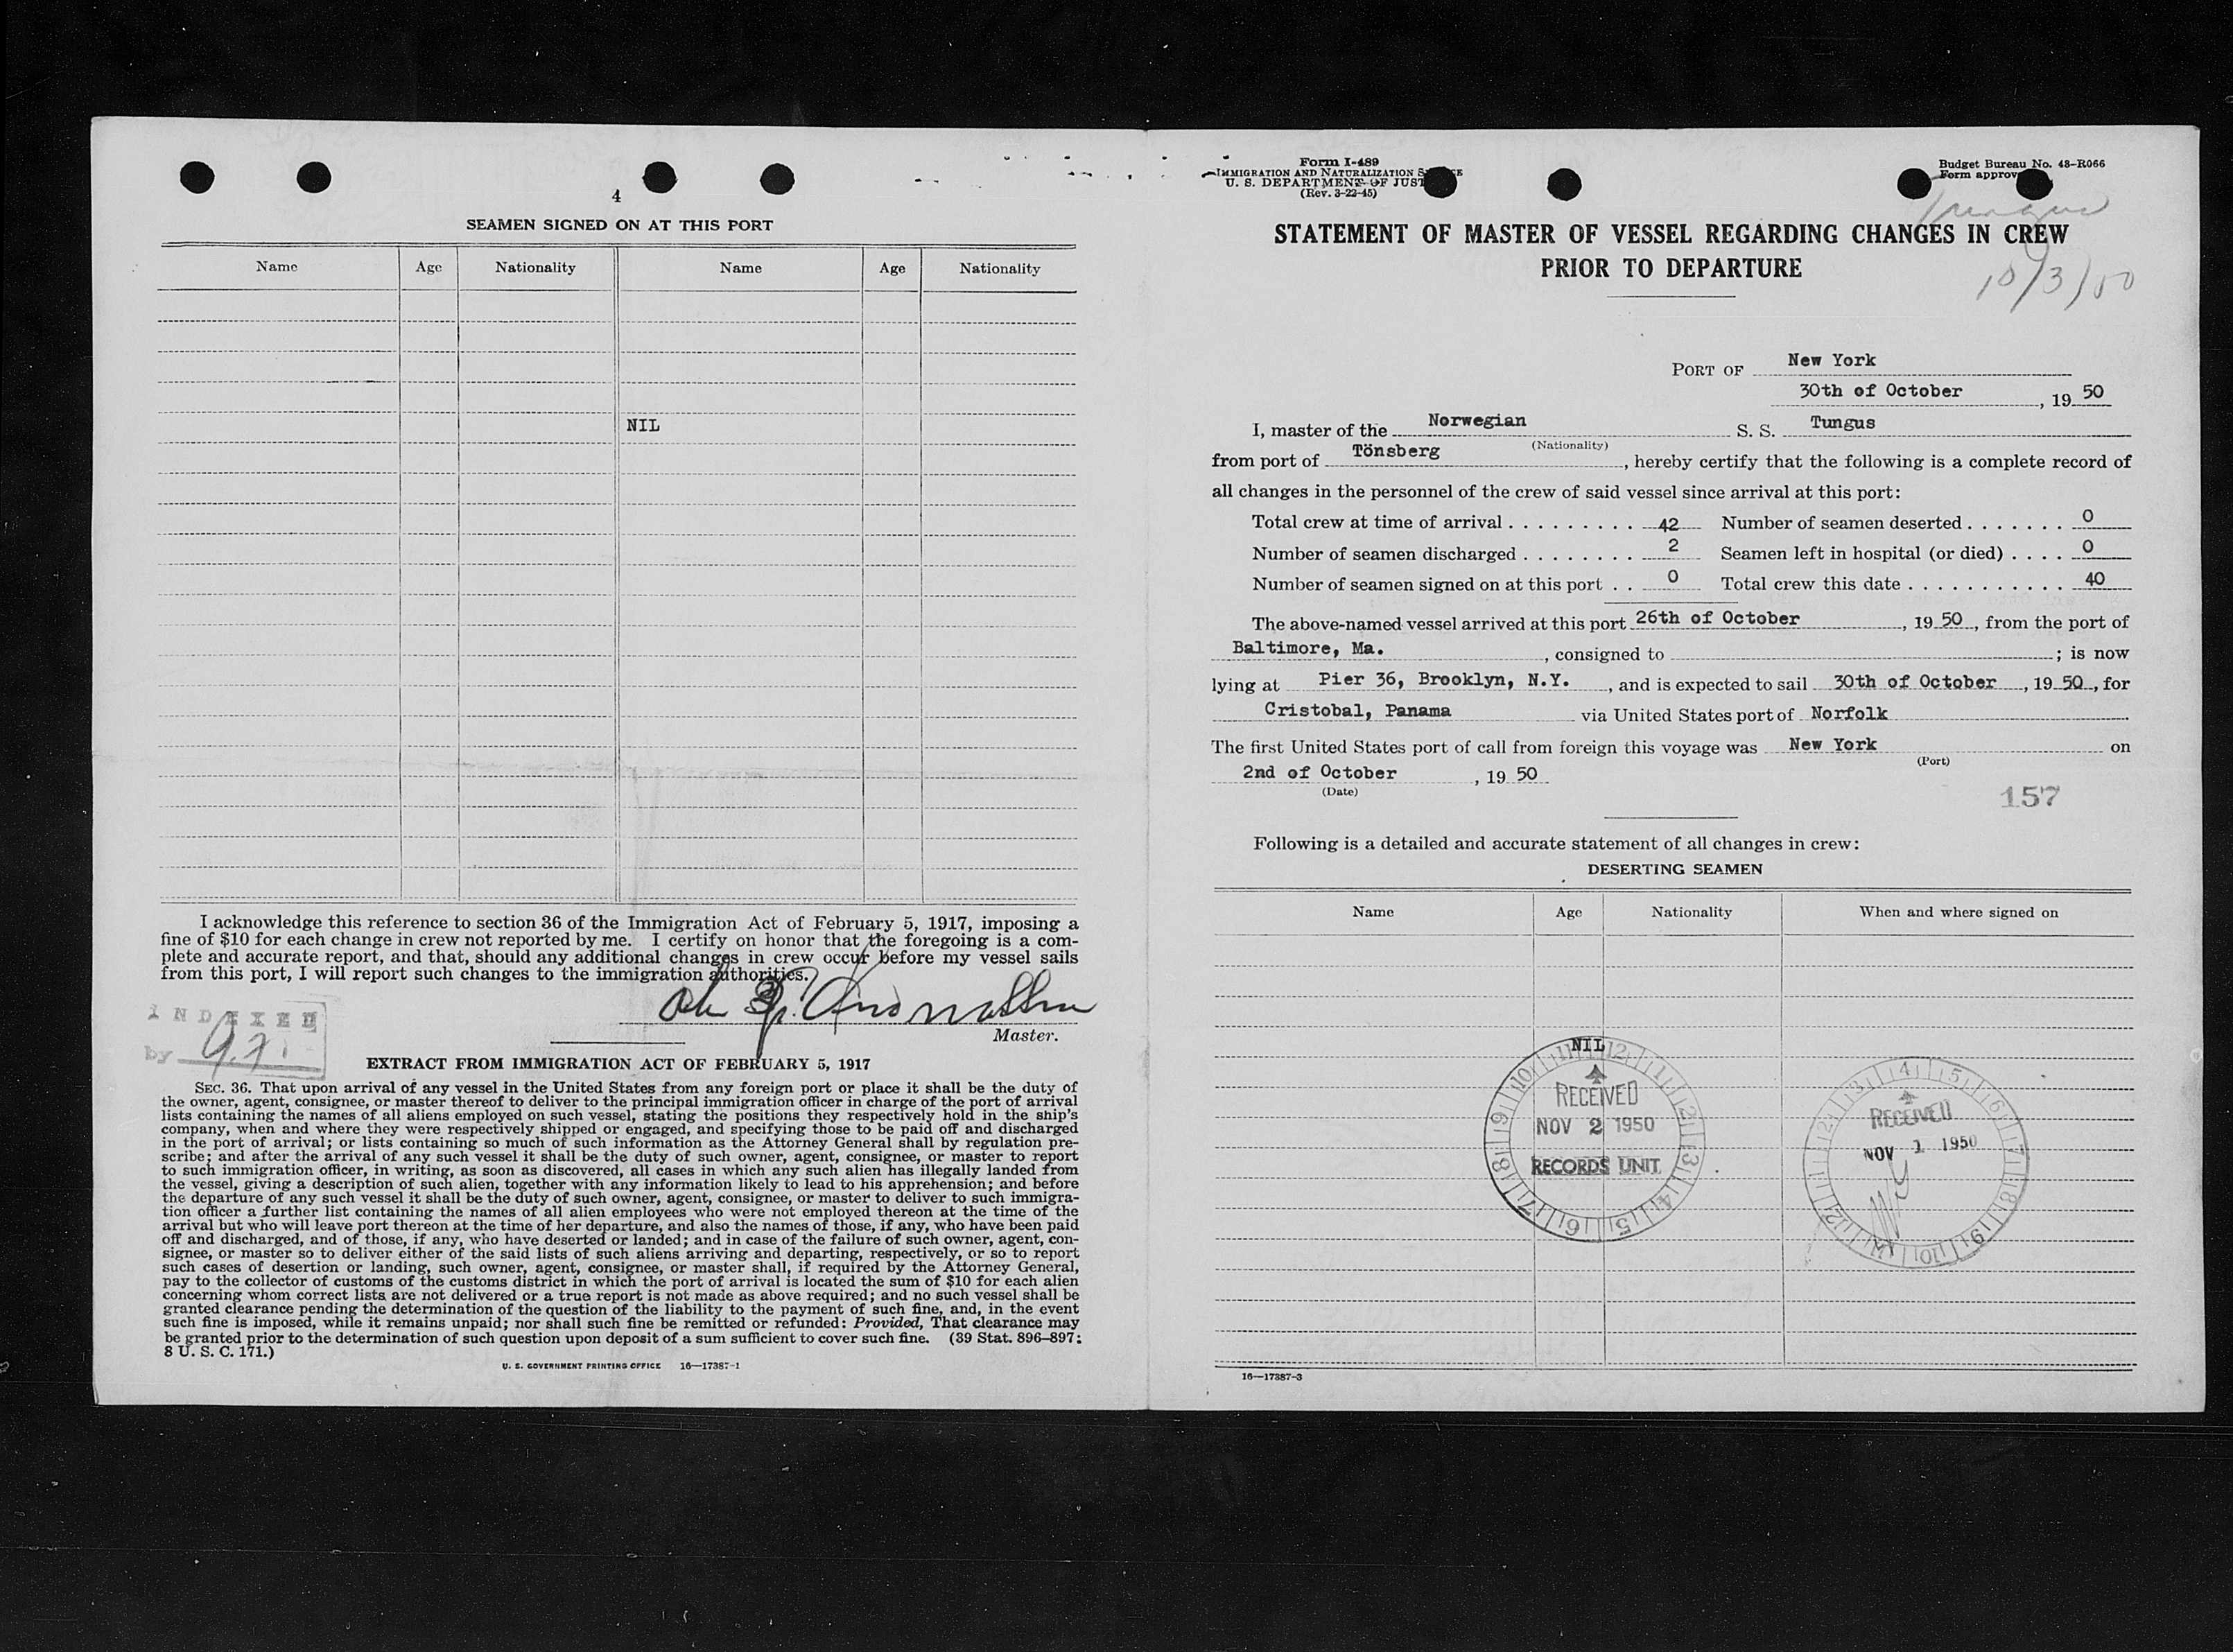 4
SEAMEN SIGNED ON AT THIS PORT
Name Age Nationality Name Age Nationality
NIL
I acknowledge this reference to section 36 of the Immigration Act of February 5, 1917, imposing a
fine of $10 for each change in crew not reported by me. I certify on honor that the foregoing is a com-
plete and accurate report, and that, should any additional changes in crew occur before my vessel sails
from this port, I will report such changes to the immigration authorities.
Master.
INDEXED
by
EXTRACT FROM IMMIGRATION ACT OF FEBRUARY 5, 1917
SEC. 36. That upon arrival of any vessel in the United States from any foreign port or place it shall be the duty of
the owner, agent, consignee, or master thereof to deliver to the principal immigration officer in charge of the port of arrival
lists containing the names of all aliens employed on such vessel, stating the positions they respectively hold in the ship's
company, when and where they were respectively shipped or engaged, and specifying those to be paid off and discharged
in the port of arrival; or lists containing so much of such information as the Attorney General shall by regulation pre-
scribe; and after the arrival of any such vessel it shall be the duty of such owner, agent, consignee, or master to report
to such immigration officer, in writing, as soon as discovered, all cases in which any such alien has illegally landed from
the vessel, giving a description of such alien, together with any information likely to lead to his apprehension; and before
the departure of any such vessel it shall be the duty of such owner, agent, consignee, or master to deliver to such immigra-
tion officer a further list containing the names of all alien employees who were not employed thereon at the time of the
arrival but who will leave port thereon at the time of her departure, and also the names of those, if any, who have been paid
off and discharged, and of those, if any, who have deserted or landed; and in case of the failure of such owner, agent, con-
signee, or master so to deliver either of the said lists of such aliens arriving and departing, respectively, or so to report
such cases of desertion or landing, such owner, agent, consignee, or master shall, if required by the Attorney General,
pay to the collector of customs of the customs district in which the port of arrival is located the sum of $10 for each alien
concerning whom correct lists are not delivered or a true report is not made as above required; and no such vessel shall be
granted clearance pending the determination of the question of the liability to the payment of such fine, and, in the event
such fine is imposed, while it remains unpaid; nor shall such fine be remitted or refunded: Provided, That clearance may
be granted prior to the determination of such question upon deposit of a sum sufficient to cover such fine. (39 Stat. 896–897;
8 U. S. C. 171.)
U. S. GOVERNMENT PRINTING OFFICE 16—17387-1
Form I-489
IMMIGRATION AND NATURALIZATION
U. S. DEPARTMENT OF JUST
(Rev. 3-22-45)
Budget Bureau No. 43-R066
Form approv
Tungus
10/3/50
STATEMENT OF MASTER OF VESSEL REGARDING CHANGES IN CREW
PRIOR TO DEPARTURE
PORT OF New York
30th of October, 19 50
I, master of the Norwegian S. S. Tungus
(Nationality)
from port of Tönsberg, hereby certify that the following is a complete record of
all changes in the personnel of the crew of said vessel since arrival at this port:
Total crew at time of arrival . . . . . . . . . 42 Number of seamen deserted . . . . . . . 0
Number of seamen discharged . . . . . . . . 2 Seamen left in hospital (or died) . . . . 0
Number of seamen signed on at this port . . 0 Total crew this date . . . . . . . . . . . . 40
The above-named vessel arrived at this port 26th of October, 19 50, from the port of
Baltimore, Ma., consigned to ; is now
lying at Pier 36, Brooklyn, N.Y., and is expected to sail 30th of October, 19 50, for
Cristobal, Panama via United States port of Norfolk
The first United States port of call from foreign this voyage was New York on
(Port)
2nd of October, 19 50
(Date)
157
Following is a detailed and accurate statement of all changes in crew:
DESERTING SEAMEN
Name Age Nationality When and where signed on
NIL
RECEIVED
NOV 2 1950
RECORDS UNIT
RECEIVED
NOV 1 1950
16—17387-3